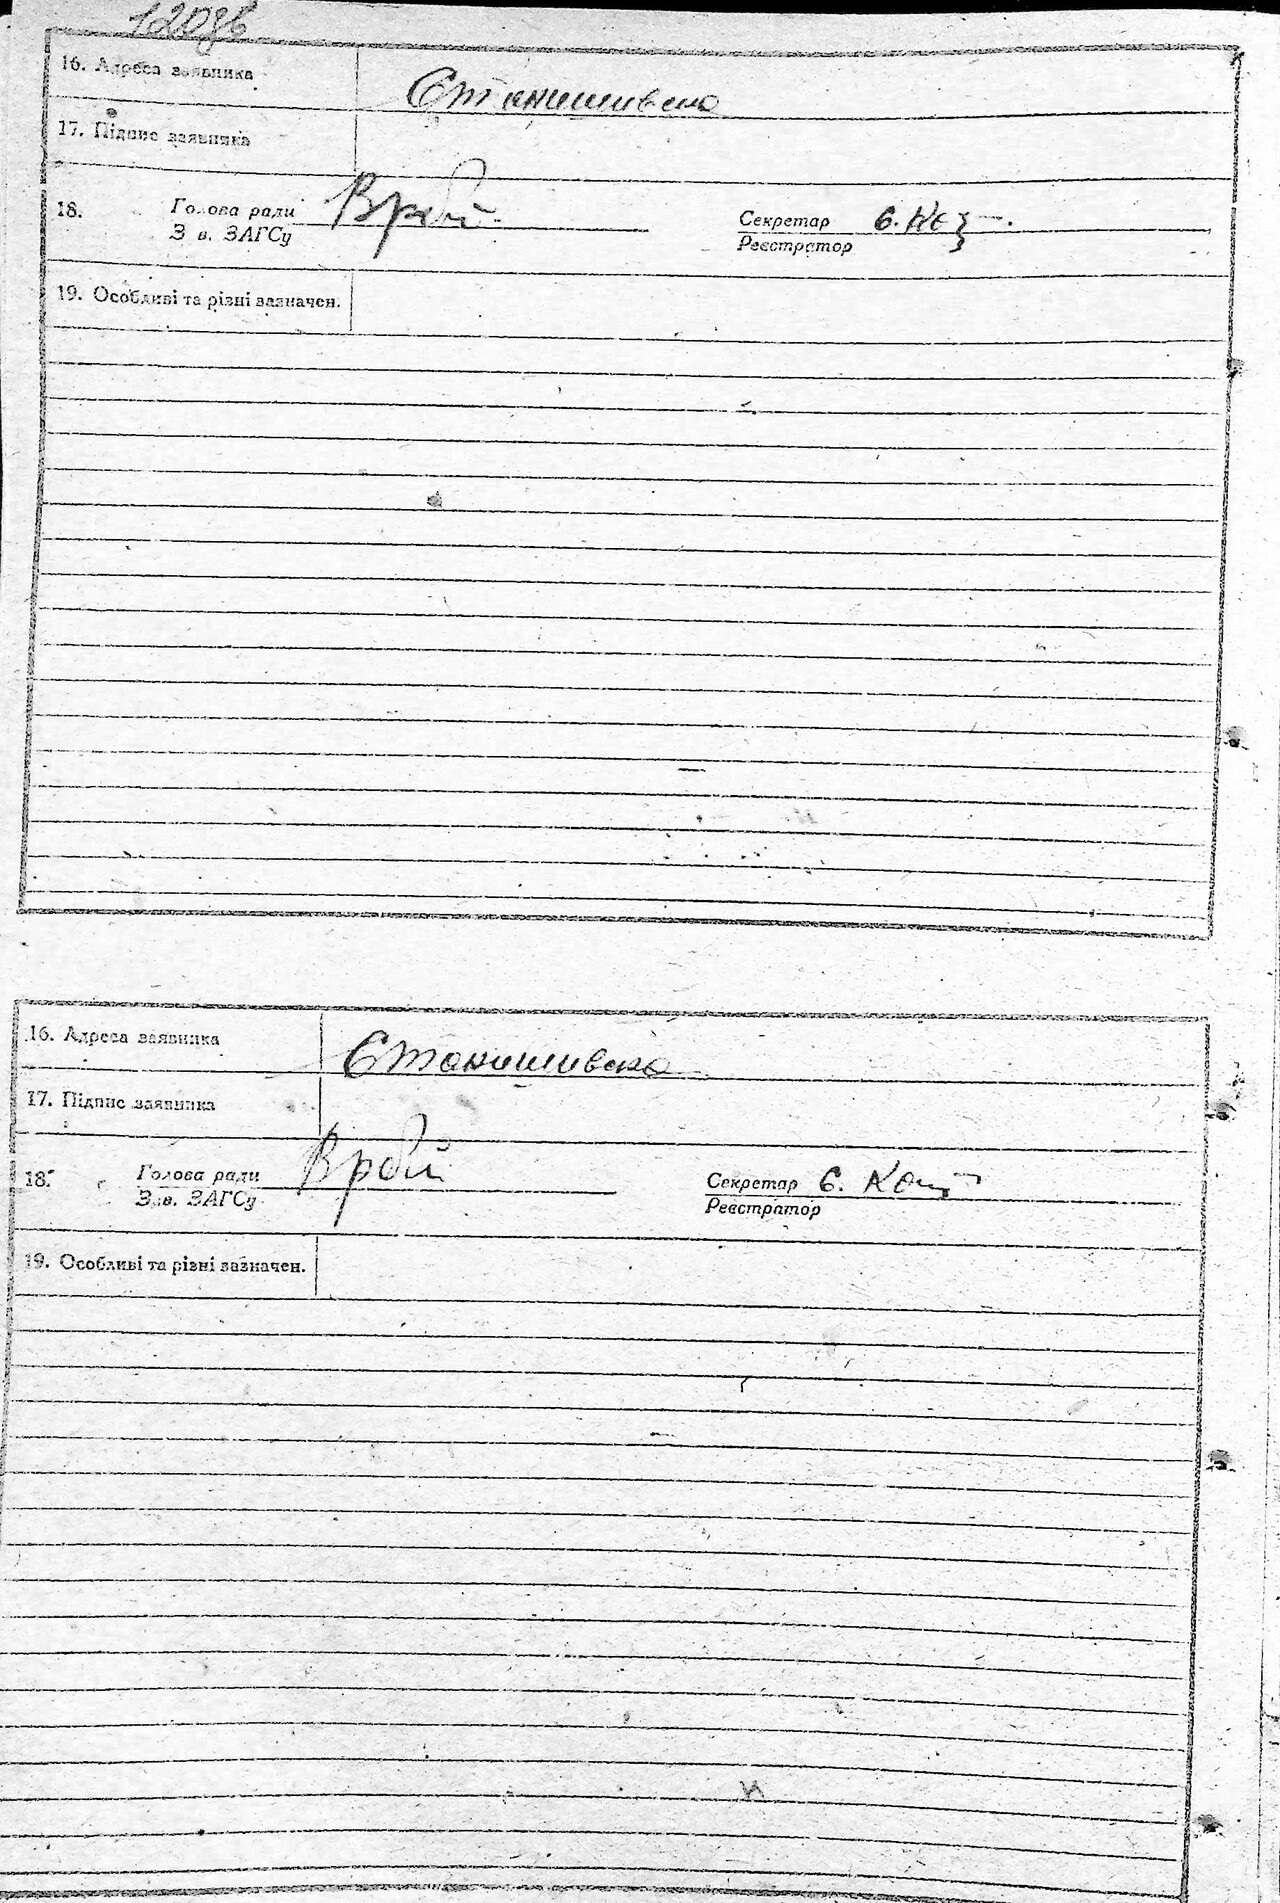 120зв
16. Адреса заявника Станишивска
17. Підпис заявника
18. Голова ради Врбй Секретар
Зав. ЗАГСу Реєстратор
19. Особливі та різні зазначен.
16. Адреса заявника Станишивска
17. Підпис заявника
18. Голова ради Врбй Секретар
Зав. ЗАГСу Реєстратор
19. Особливі та різні зазначен.